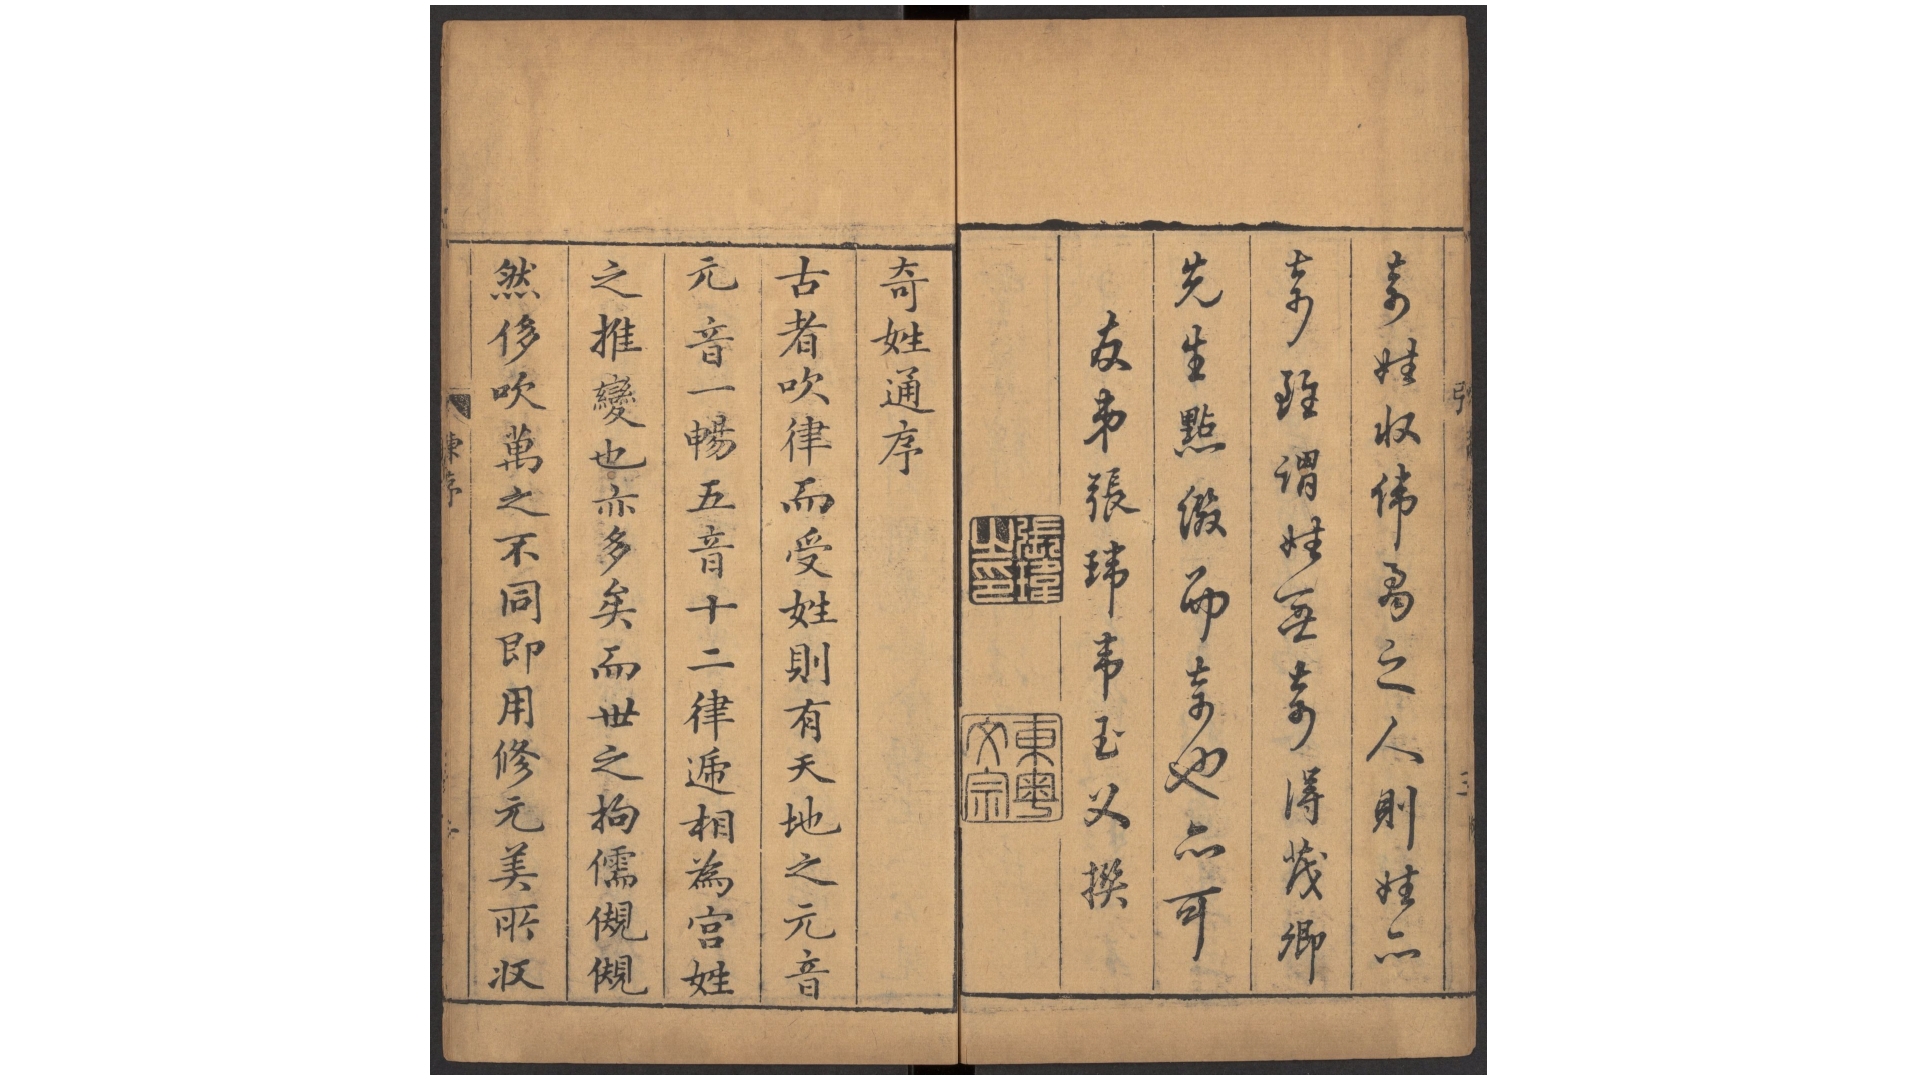 張
三
奇姓収偉之人則姓亦
奇雖謂姓無奇得茂卿
先生點綴而奇也亦可
友弟張瑋韋玉父撰
張瑋之印
東粵文宗
奇姓通序
古者吹律而受姓則有天地之元音
元音一暢五音十二律遞相為宮姓
之推變也亦多矣而世之拘儒
然侈吹萬之不同即用修元美所収
陳序